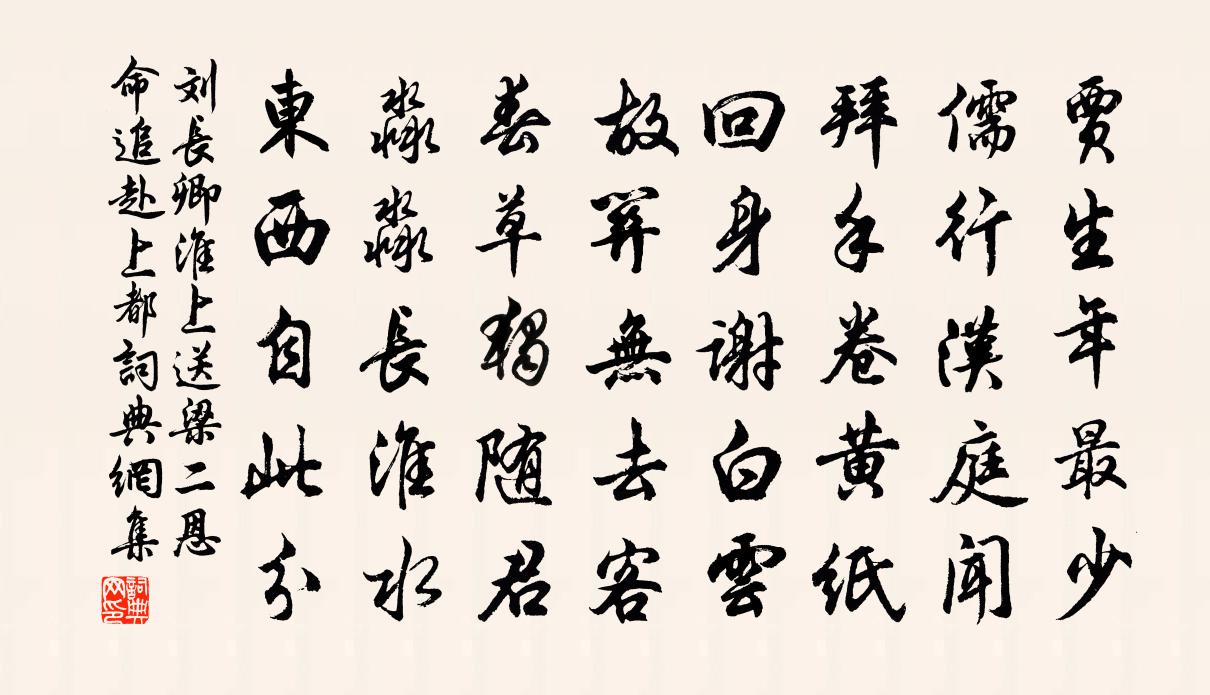 賈生年最少
儒行漢庭聞
拜手卷黄紙
回身謝白雲
故關無去客
春草獨隨君
淼淼長淮水
東西自此分
刘長卿淮上送梁二恩
命追赴上都詞典網集
詞典網印